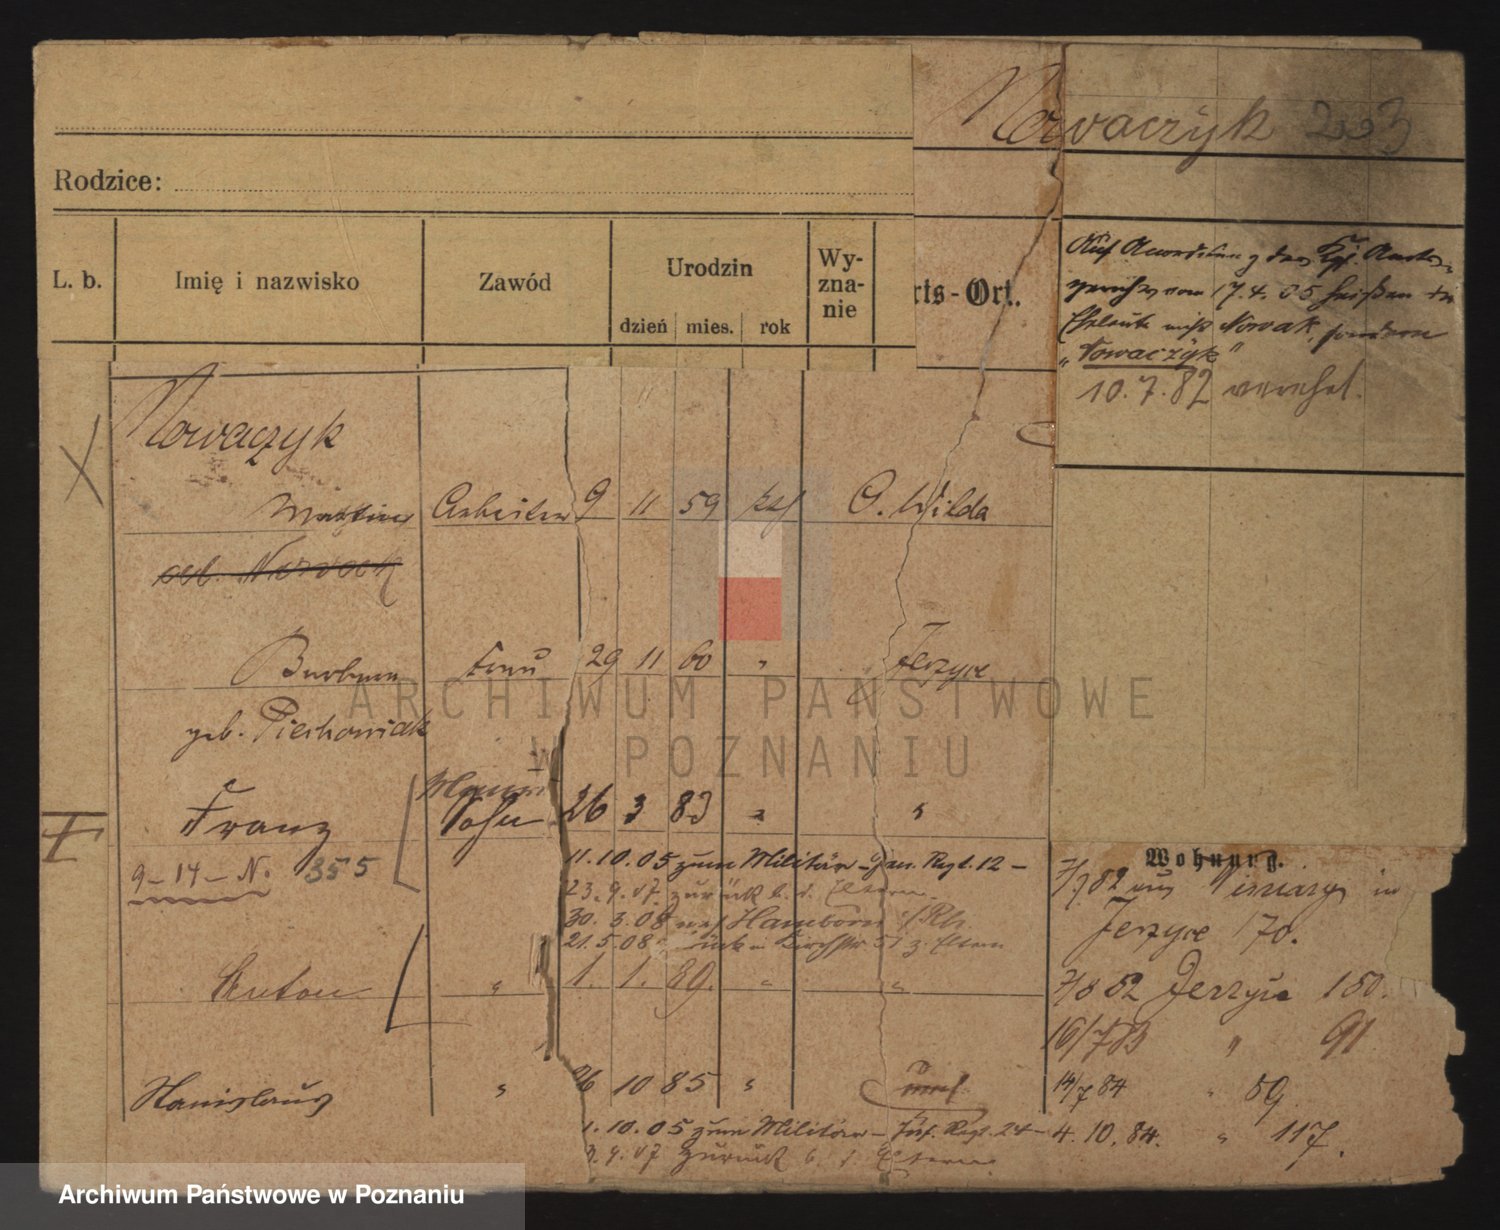 Nowaczyk
Rodzice:
L. b. Imię i nazwisko Zawód Urodzin Wy-
zna-
nie
dzień mies. rok
rts-Ort.
Auf Anordnung des Kgl. Amts-
gerichts vom 17.4.05 heißen die
Eheleute nicht Nowak, sondern
"Nowaczyk"
10.7.82 verehel.
Nowaczyk
Martin Arbeiter 9 11 59 kth G. Wilda
Nowack
Barbara Frau 29 11 60 " Jerzyce
geb. Piechowiak
Franz Sohn 26 3 83 " "
9-14-N. 355
11.10.05 zum Militär - Regt. 12 -
23.9.07 zurück b. d. Eltern.
30.3.08 nach Hamborn a/Rh
21.5.08 Kirchstr. 51 z. Eltern
Anton " 1. 1. 89. " "
Stanislaus " 26 10 85 "
1.10.05 zum Militär - Inf. Regt. 24 -
9.07 zurück b. d. Eltern.
Wohnung.
82 aus in
Jerzyce 170.
7/8 82 Jerzyce 150.
16/7 83 " 91
14/7 84 " 59
4.10.84. " 117.
ARCHIWUM PAŃSTWOWE
W POZNANIU
Archiwum Państwowe w Poznaniu